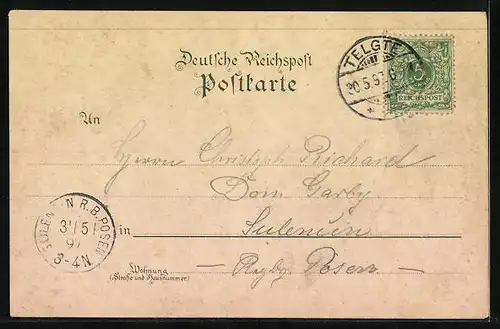 Deutsche Reichspost
Postkarte
TELGTE
30.5.97
5
REICHSPOST
An
Herrn Christoph Richard
Dom. Garby
SULEN N R.B. POSEN
31/5
97
3-4N
in Sulencin
Wohnung
(Straße und Hausnummer)
Rgbz. Posen